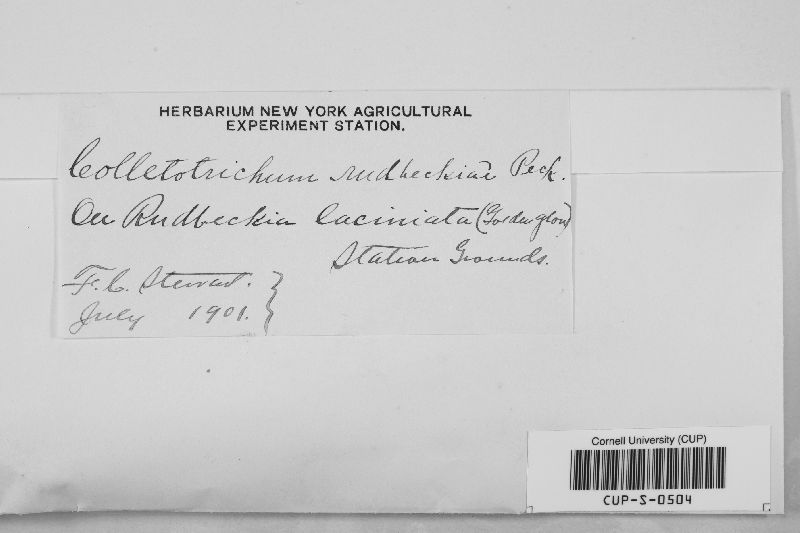 HERBARIUM NEW YORK AGRICULTURAL
EXPERIMENT STATION.
Colletotrichum rudbeckiae Peck.
On Rudbeckia laciniata (Golden glow)
Station Grounds.
F. C. Stewart.
July 1901.
Cornell University (CUP)
CUP-S-0504